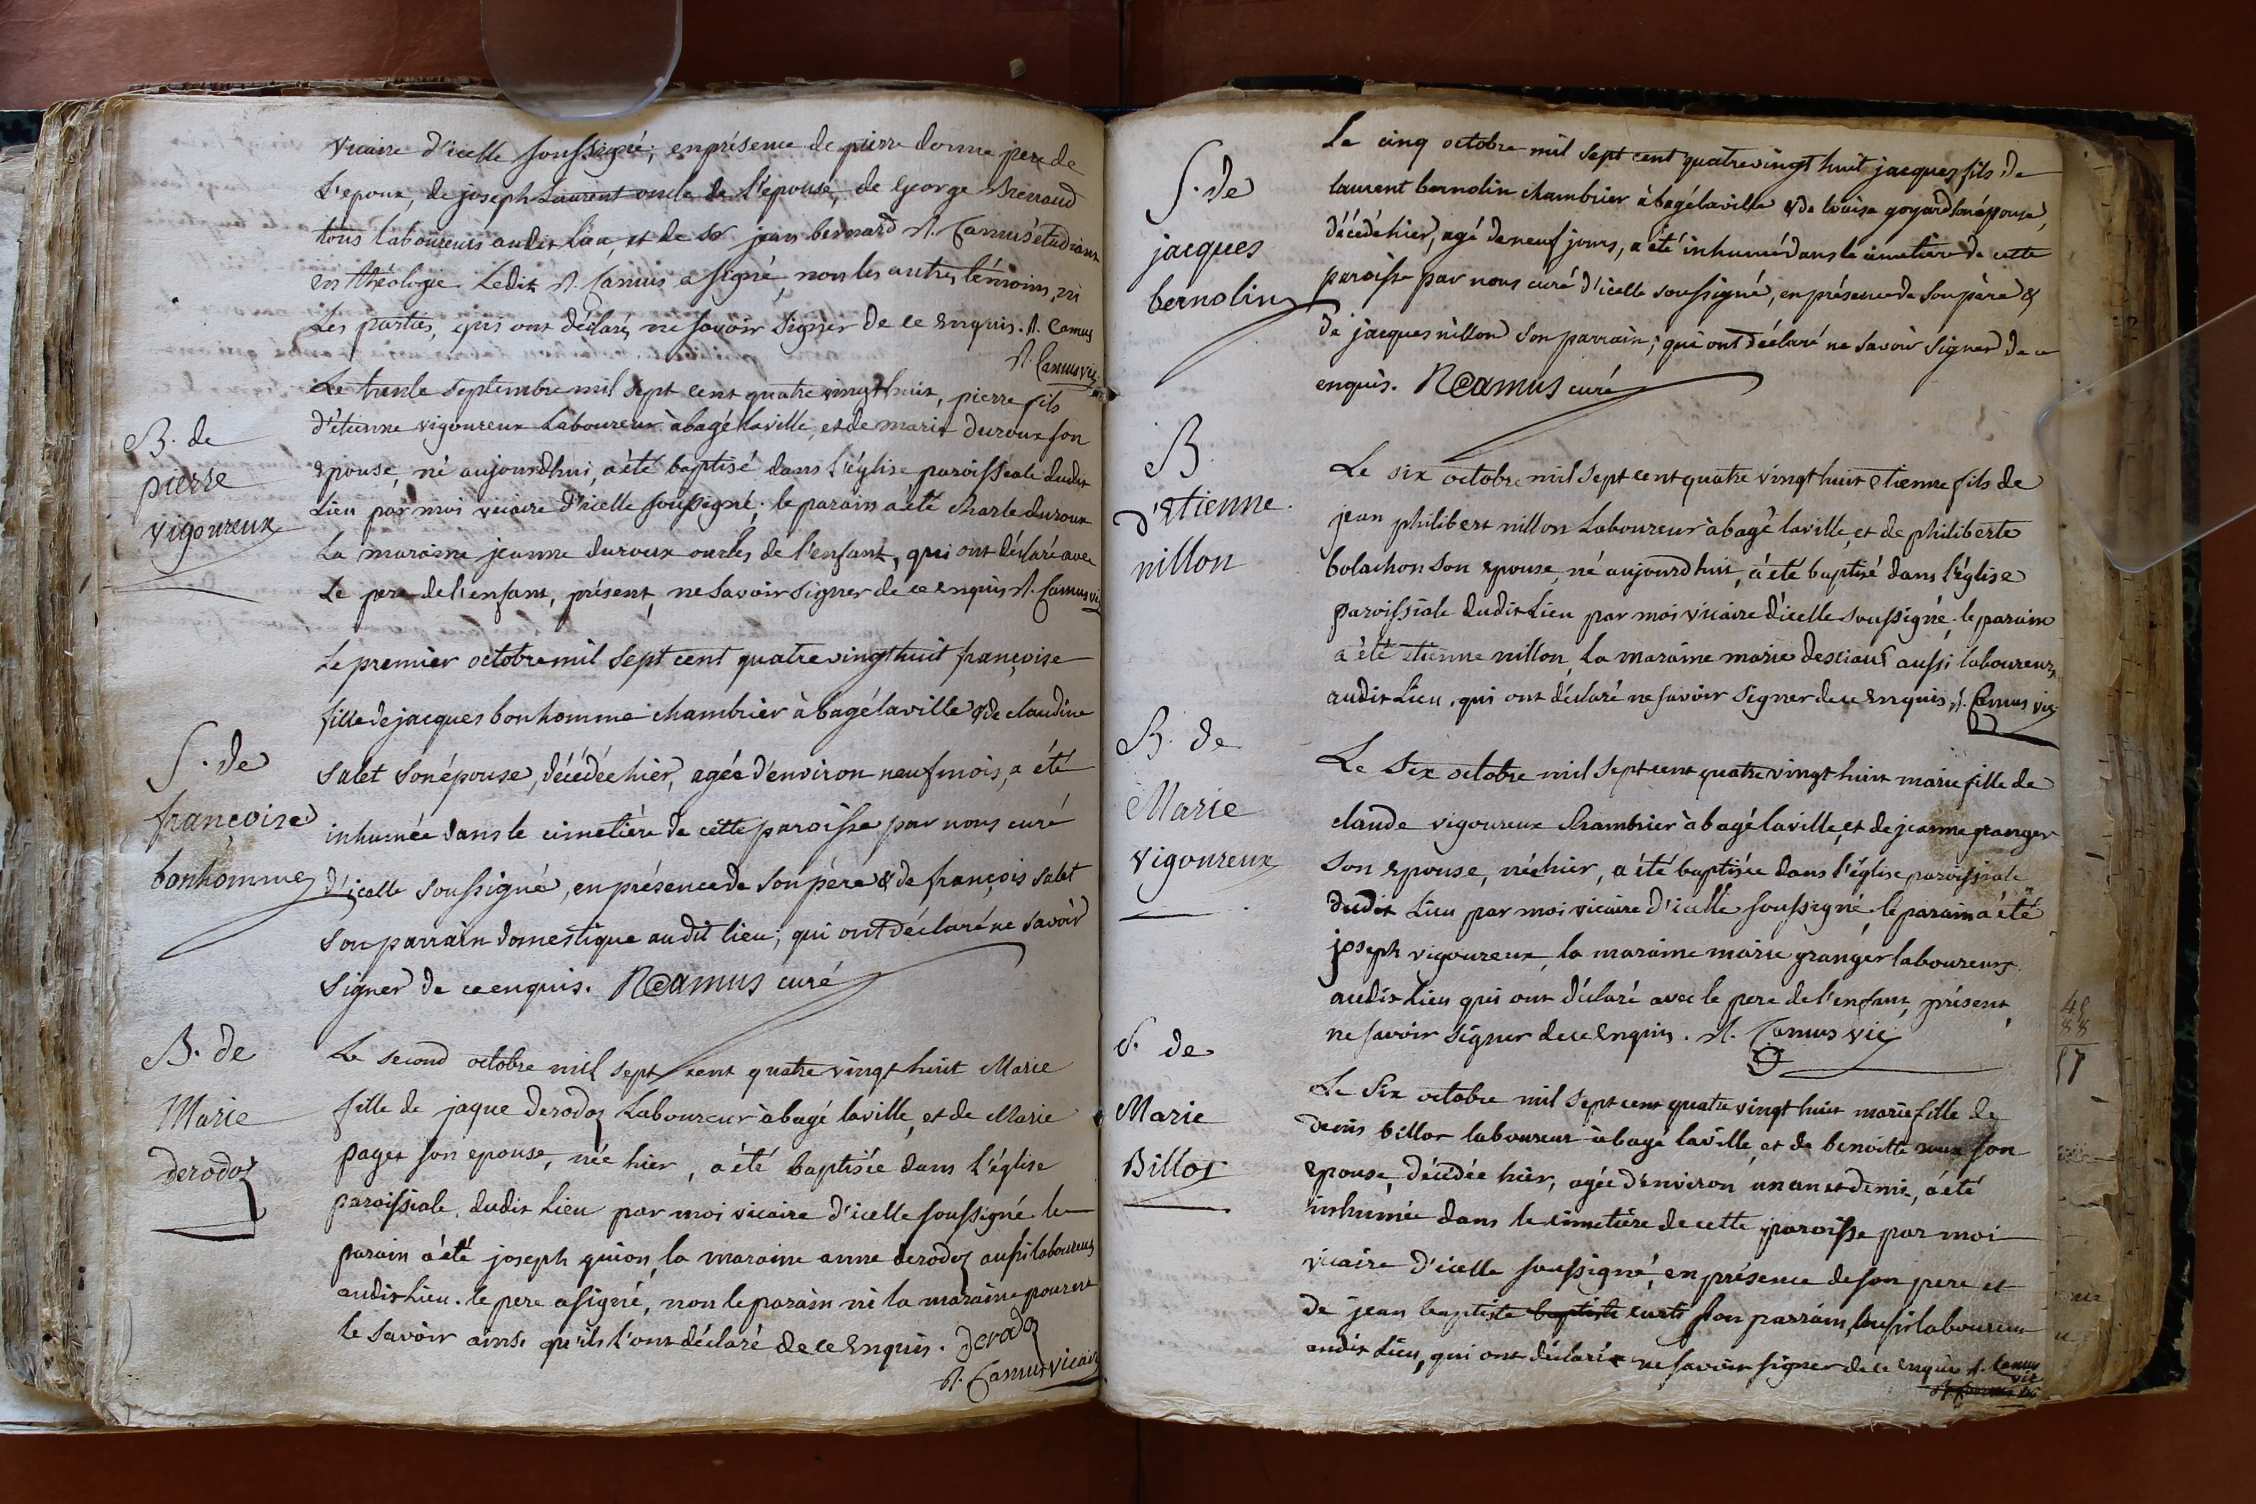 vicaire d'icelle soussigné; en présence de pierre donne pere de
L'epoux, de joseph Laurent oncle de l'épouse, de George Brenaud
tous laboureurs audit lieu, et de Sr jean bernard N. Camus étudiant
en théologie. Ledit N. Camus a signé, non les autres témoins, ni
Les parties, qui ont déclaré ne savoir signer de ce enquis. N. Camus
N. Camus vic
B. de
pierre
vigoureux
Le trente septembre mil sept cent quatre vingt huit, pierre fils
d'étienne vigoureux Laboureur à bagé laville, et de marie duroux son
epouse, né aujourdhui, a été baptisé dans l'église paroissiale dudit
Lieu par moi vicaire d'icelle soussigné; le parain a été charle duroux
La maraine jeanne duroux oncles de l'enfant, qui ont déclaré avec
Le pere de l'enfant, présent, ne savoir signer de ce enquis N. Camus vic
S. de
françoise
bonhomme
Le premier octobre mil sept cent quatre vingt huit françoise
fille de jacques bonhomme chambrier à bagé laville & de claudine
salet son épouse, décédée hier, agée d'environ neuf mois, a été
inhumée dans le cimetière de cette paroisse par nous curé
d'icelle soussigné, en présence de son père & de françois salet
son parrain domestique au dit lieu; qui ont déclaré ne savoir
signer de ce enquis. N Camus curé
B. de
Marie
derodoz
Le second octobre mil sept cent quatre vingt huit Marie
fille de jaque derodoz Laboureur à bagé laville, et de Marie
paget son epouse, née hier, a été baptisée dans l'église
paroissiale dudit Lieu par moi vicaire d'icelle soussigné. le
parain a été joseph guion, la maraine anne derodoz aussi laboureurs
audit Lieu. le pere a signé, non le parain ni la maraine pour ne
le savoir ainsi qu'ils l'ont déclaré de ce enquis. Derodoz
N. Camus vicaire
S. de
jacques
bernolin
Le cinq octobre mil sept cent quatre vingt huit jacques fils de
laurent bernolin chambrier à bagé laville & de louise goyard son épouse,
décédé hier, agé de neuf jours, a été inhumé dans le cimetière de cette
paroisse par nous curé d'icelle soussigné, en présence de son père &
de jacques nillon son parrain; qui ont déclaré ne savoir signer de ce
enquis. N Camus curé
B.
d'Etienne
nillon
Le six octobre mil sept cent quatre vingt huit etienne fils de
jean philibert nillon Laboureur à bagé laville, et de philiberte
bolachon son epouse, né aujourd'hui, a été baptisé dans l'église
paroissiale dudit Lieu par moi vicaire d'icelle soussigné. le parain
a été etienne nillon, la maraine marie aussi laboureurs
audit Lieu. qui ont déclaré ne savoir signer de ce enquis. N. Camus vic
B. de
Marie
vigoureux
Le Six octobre mil sept cent quatre vingt huit marie fille de
claude vigoureux chambrier à bagé laville, et de jeanne granger
son epouse, née hier, a été baptisée dans l'église paroissiale
dudit Lieu par moi vicaire d'icelle soussigné, le parain a été
joseph vigoureux, la maraine marie granger laboureurs
audit Lieu qui ont déclaré avec le pere de l'enfant, présent,
ne savoir signer de ce enquis. N. Camus vic
S. de
Marie
Billot
Le Six octobre mil sept cent quatre vingt huit marie fille de
denis billot laboureur à bagé laville, et de benoitte roux son
epouse, décédée hier, agée d'environ un an et demi, a été
inhumée dans le cimetière de cette paroisse par moi
vicaire d'icelle soussigné, en présence de son pere et
de jean baptiste baptiste curti son parrain, aussi laboureur
audit Lieu, qui ont déclaré ne savoir signer de ce enquis N. Camus
vic